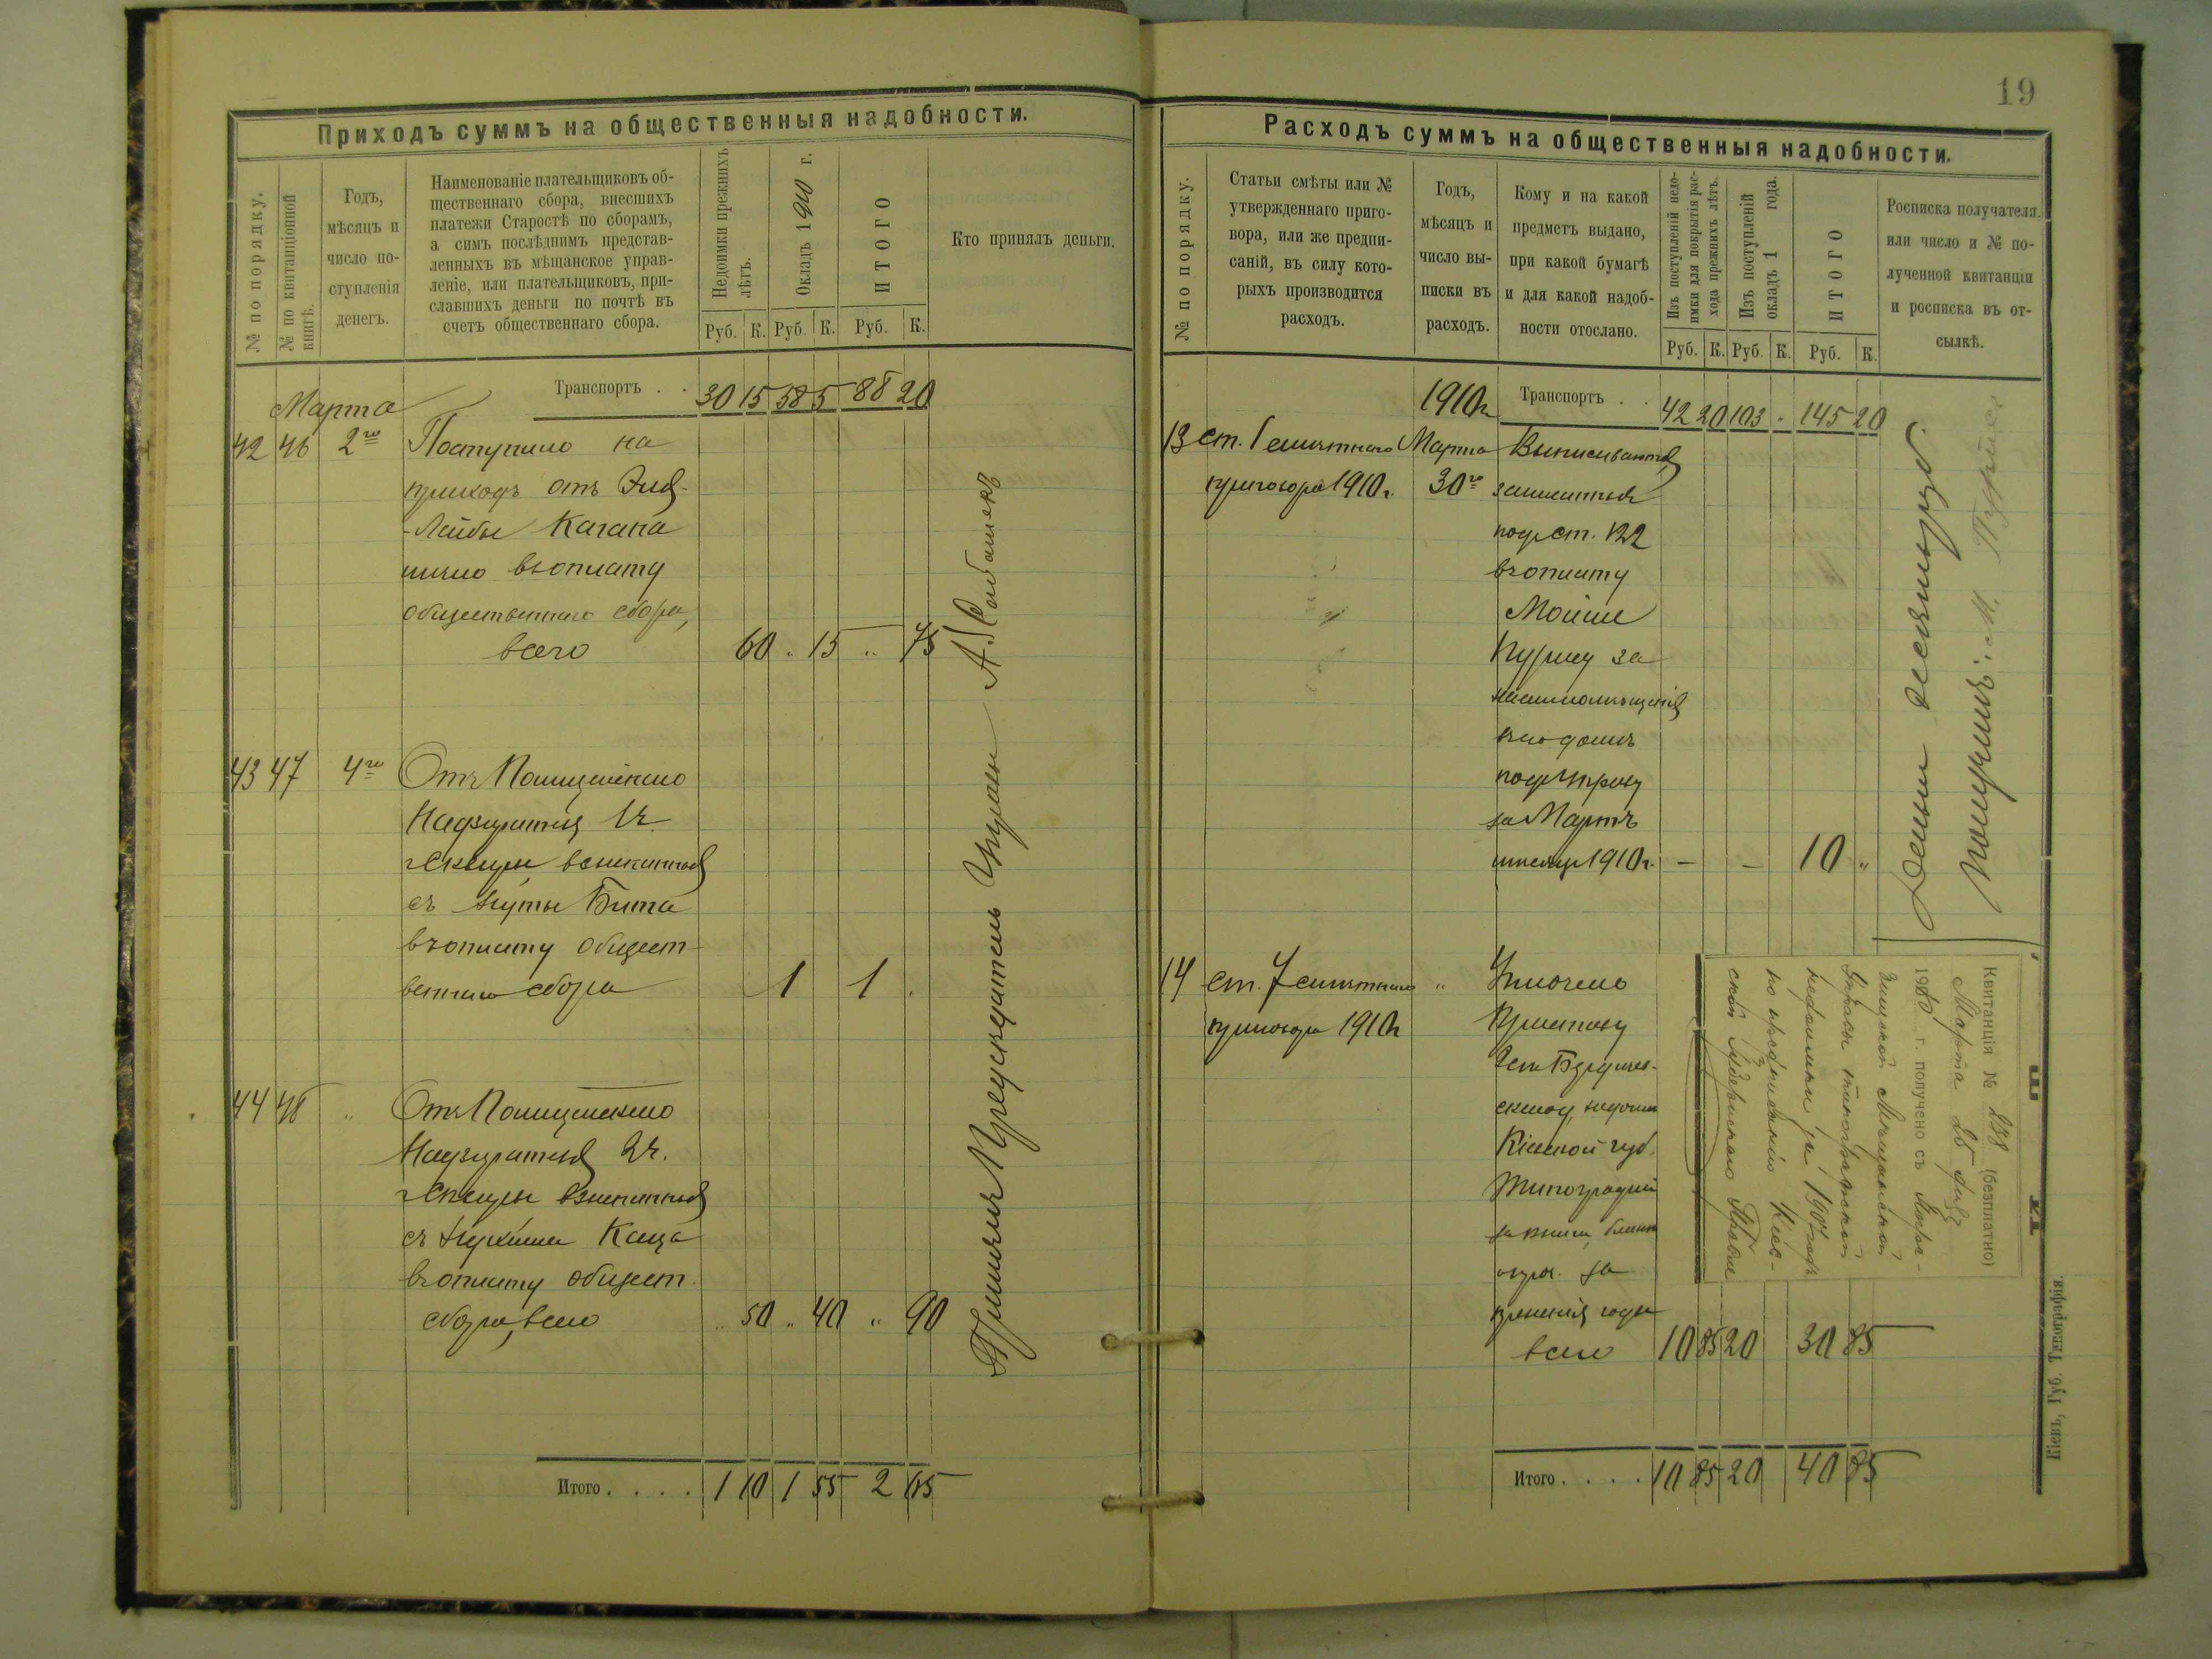 19
Приходъ суммъ на общественныя надобности.
№ по порядку.
№ по квитанціонной
книгѣ.
Годъ,
мѣсяцъ и
число по-
ступленія
денегъ.
Наименованіе плательщиковъ об-
щественнаго сбора, внесшихъ
платежи Старостѣ по сборамъ,
а симъ послѣднимъ представ-
ленныхъ въ мѣщанское управ-
леніе, или плательщиковъ, при-
славшихъ деньги по почтѣ въ
счетъ общественнаго сбора.
Недоимки прежнихъ
лѣтъ.
Окладъ 1910 г.
ИТОГО
Кто принялъ деньги.
Руб. К. Руб. К. Руб. К.
Транспортъ . . 30 15 58 5 88 20
Марта
42 46 2го Поступило на
приходъ отъ
Лейбы Кагана
въ оплату
общественнаго сбора,
всего 60 „ 15 „ 75
43 47 4го Отъ Полицейскаго
Надзирателя 1 ч.
г. Сквиры взысканныя
съ Бита
въ оплату общест-
веннаго сбора 1 1 .
44 48 „ Отъ Полицейскаго
Надзирателя 2 ч.
г. Сквиры взысканныя
съ Каца
въ оплату общест.
сбора, всего „ 50 „ 40 „ 90
Принялъ Предсѣдатель Управы
Итого . . . . 1 10 1 55 2 65
Расходъ суммъ на общественныя надобности.
№ по порядку.
Статьи смѣты или №
утвержденнаго приго-
вора, или же предпи-
саній, въ силу кото-
рыхъ производится
расходъ.
Годъ,
мѣсяцъ и
число вы-
писки въ
расходъ.
Кому и на какой
предметъ выдано,
при какой бумагѣ
и для какой надоб-
ности отослано.
Изъ поступленій недо-
имки для покрытія рас-
хода прежнихъ лѣтъ.
Изъ поступленій
окладъ 1 года.
ИТОГО
Росписка получателя
или число и № по-
лученной квитанціи
и росписка въ от-
сылкѣ.
Руб. К. Руб. К. Руб. К.
1910 г. Транспортъ . . 42 20 103 . 145 20
13 ст. 1 смѣтнаго Марта Выписываются
приговора 1910 г. 30го
под ст. 122
въ оплату
Мойше
Пурису за
наемъ помѣщенія
въ его домѣ
под Управу
за Мартъ
мѣсяцъ 1910 г. — — 10 „
Деньги десять руб.
получилъ: М. Пурисъ
14 ст. 7 смѣтнаго „ Уплочено
приговора 1910 г. Приставу
Бердичев-
Кіевской губ.
Типографіи
за книги, бланки
и проч. за
прежніе годы
всего 10 85 20 30 85
Квитанція № 238 (безплатно)
Марта 25 дня
1910 г. получено съ Сквир-
Мѣщанской
Управы типографской
недоимки за 1907 годъ
по предписанію Кіев-
ской Губернскаго Правле
Итого . . . . 10 85 20 40 85
Кіевъ, Губ. Типографія.